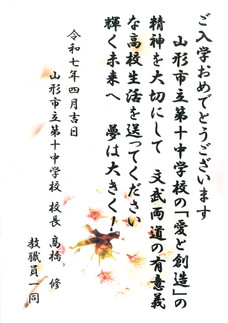 ご入学おめでとうございます
山形市立第十中学校の「愛と創造」の
精神を大切にして　文武両道の有意義
な高校生活を送ってください
輝く未来へ　夢は大きく！
令和七年四月吉日
山形市立第十中学校　校長　高橋　修
教職員一同